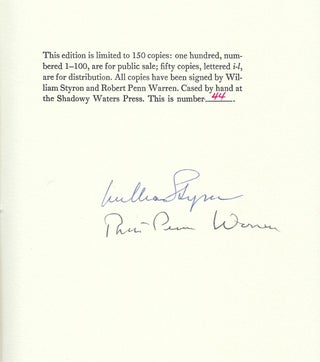 This edition is limited to 150 copies: one hundred, num-
bered 1-100, are for public sale; fifty copies, lettered i-l,
are for distribution. All copies have been signed by Wil-
liam Styron and Robert Penn Warren. Cased by hand at
the Shadowy Waters Press. This is number 44.
William Styron
Robert Penn Warren